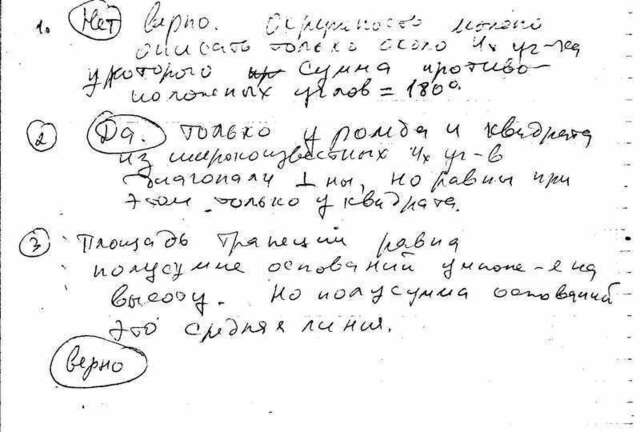 1. Нет верно. Окружность можно
описать только около 4х уг-ка
у которого сумма противо-
положных углов = 180°.
2 Да. только у ромба и квадрата
из широкоизвестных 4х уг-в
диагонали ⊥ ны, но равны при
этом только у квадрата.
3 Площадь трапеции равна
полусумме оснований умноже-й на
высоту. Но полусумма оснований
это средняя линия.
верно